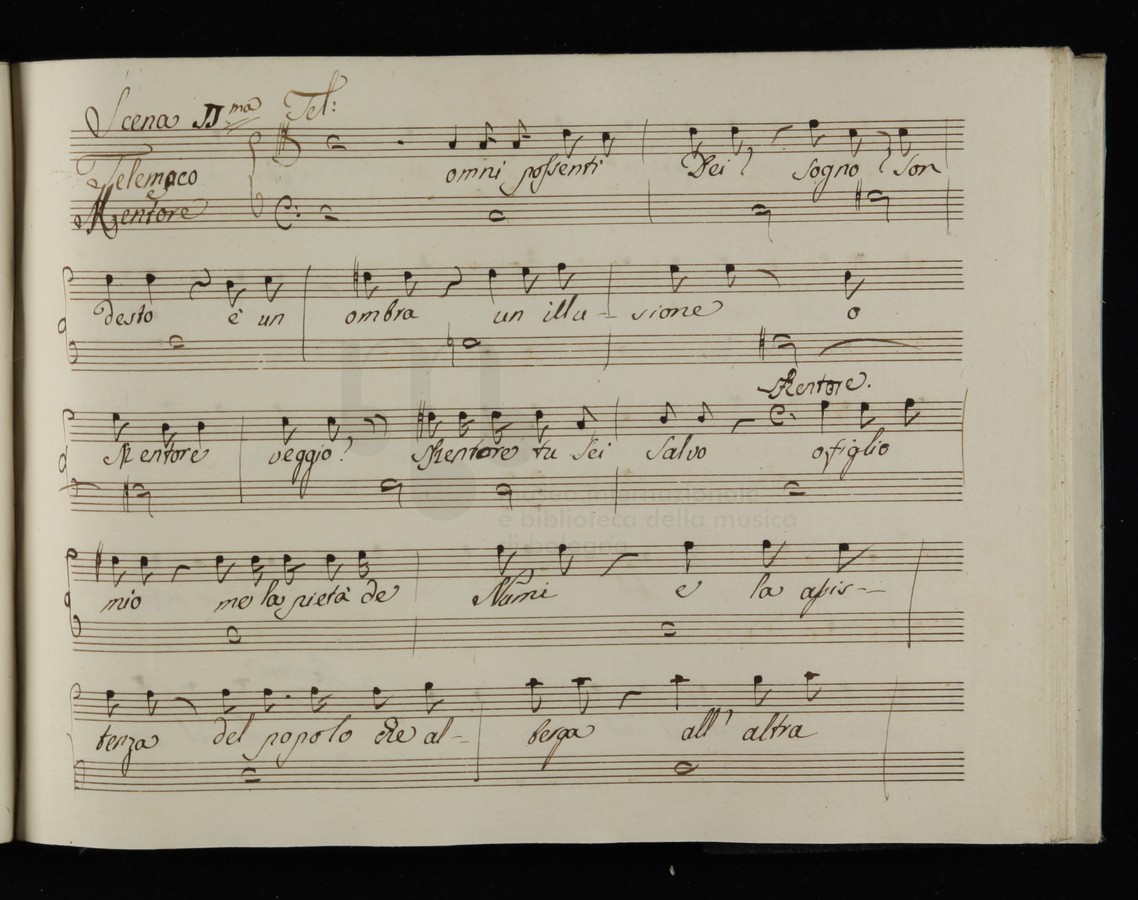 Scena II^ma Tel:
Telemaco
e
Mentore
omni possenti Dei? sogno? son
desto è un ombra un illu- sione o
Mentore.
Mentore veggio? Mentore tu sei salvo o figlio
mio me la pietà de Numi e la assis-
tenza del popolo che al- berga all' altra
museo internazionale
e biblioteca della musica
di bologna